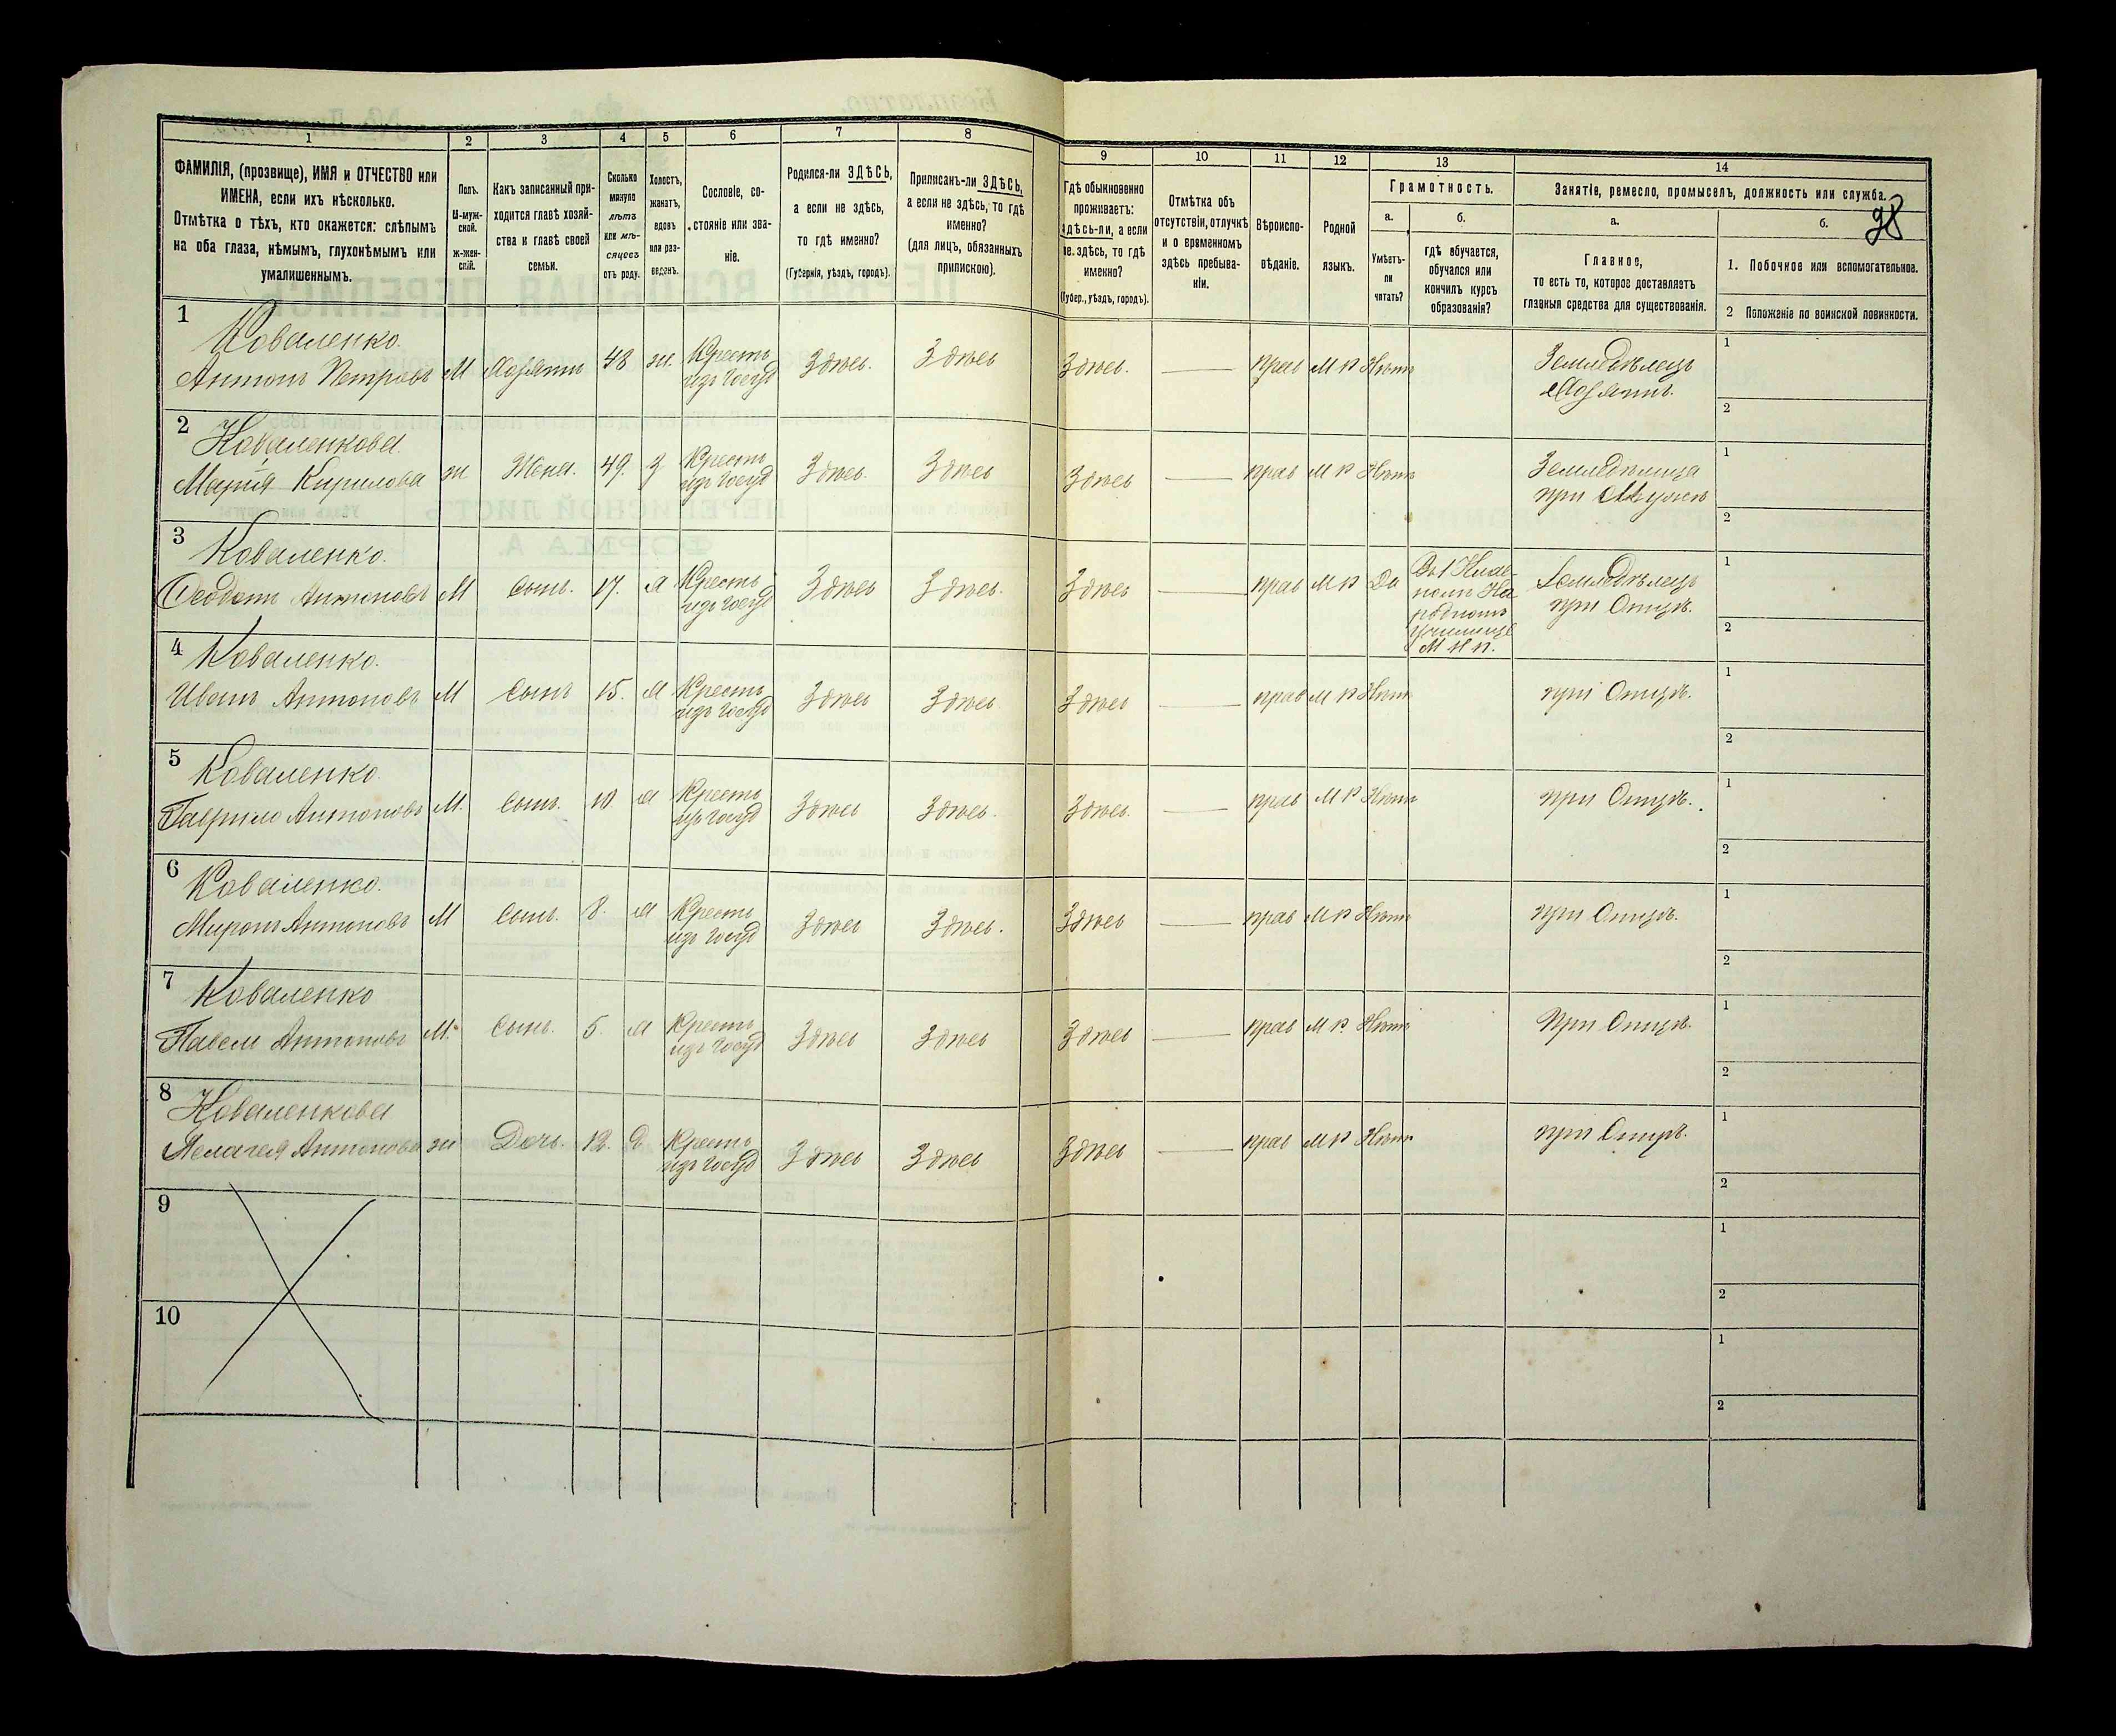 1
2
3
4
5
6
7
8
9
10
11
12
13
14
ФАМИЛІЯ, (прозвище), ИМЯ и ОТЧЕСТВО или
ИМЕНА, если ихъ нѣсколько.
Отмѣтка о тѣхъ, кто окажется: слѣпымъ
на оба глаза, нѣмымъ, глухонѣмымъ или
умалишеннымъ.
Полъ.
М-муж-
ской.
ж-жен-
скій.
Какъ записанный при-
ходится главѣ хозяй-
ства и главѣ своей
семьи.
Сколько
минуло
лѣтъ
или мѣ-
сяцевъ
отъ роду.
Холостъ,
женатъ,
вдовъ
или раз-
веденъ.
Сословіе, со-
стояніе или зва-
ніе.
Родился-ли ЗДѢСЬ,
а если не здѣсь,
то гдѣ именно?
(Губернія, уѣздъ, городъ).
Приписанъ-ли ЗДѢСЬ,
а если не здѣсь, то гдѣ
именно?
(для лицъ, обязанныхъ
припискою).
Гдѣ обыкновенно
проживаетъ:
здѣсь-ли, а если
не здѣсь, то гдѣ
именно?
(Губер., уѣздъ, городъ).
Отмѣтка объ
отсутствіи, отлучкѣ
и о временномъ
здѣсь пребыва-
ніи.
Вѣроиспо-
вѣданіе.
Родной
языкъ.
Грамотность.
а.
б.
Умѣетъ-
ли
читать?
гдѣ обучается,
обучался или
кончилъ курсъ
образованія?
Занятіе, ремесло, промыселъ, должность или служба.
а.
б.
Главное,
то есть то, которое доставляетъ
главныя средства для существованія.
1. Побочное или вспомогательное.
2 Положеніе по воинской повинности.
1
Коваленко.
Антонъ Петровъ М Хозяинъ 48 ж. Крестъ изъ Госуд Здѣсь. Здѣсь Здѣсь. прав М Р Нѣтъ Земледѣлецъ
Хозяинъ.
1
2
2
Коваленкова.
Марія Кирилова ж Жена. 49. з Крестъ изъ Госуд Здѣсь. Здѣсь Здѣсь прав М Р Нѣтъ Земледѣлица
при Мужѣ
1
2
3
Коваленко.
Ѳеодотъ Антоновъ М Сынъ. 17. Крестъ изъ Госуд Здѣсь Здѣсь. Здѣсь прав М Р Да
Народномъ
училищѣ
М Н П.
Земледѣлецъ
при Отцѣ.
1
2
4
Коваленко.
Иванъ Антоновъ М Сынъ 15. Крестъ изъ Госуд Здѣсь Здѣсь Здѣсь прав М Р Нѣтъ при Отцѣ.
1
2
5
Коваленко
Гаврило Антоновъ М. Сынъ. 10. Крестъ изъ Госуд Здѣсь Здѣсь. Здѣсь. прав М Р Нѣтъ при Отцѣ.
1
2
6
Коваленко.
Миронъ Антоновъ М Сынъ. 8. Крестъ изъ Госуд Здѣсь Здѣсь. Здѣсь прав М Р Нѣтъ при Отцѣ.
1
2
7
Коваленко
Павелъ Антоновъ М. Сынъ. 5. Крестъ изъ Госуд Здѣсь Здѣсь Здѣсь прав М Р. Нѣтъ При Отцѣ.
1
2
8
Коваленкова
Пелагея Антонова ж Дочь. 12. Д. Крестъ изъ Госуд Здѣсь Здѣсь Здѣсь прав М Р Нѣтъ при Отцѣ.
1
2
9
1
2
10
1
2